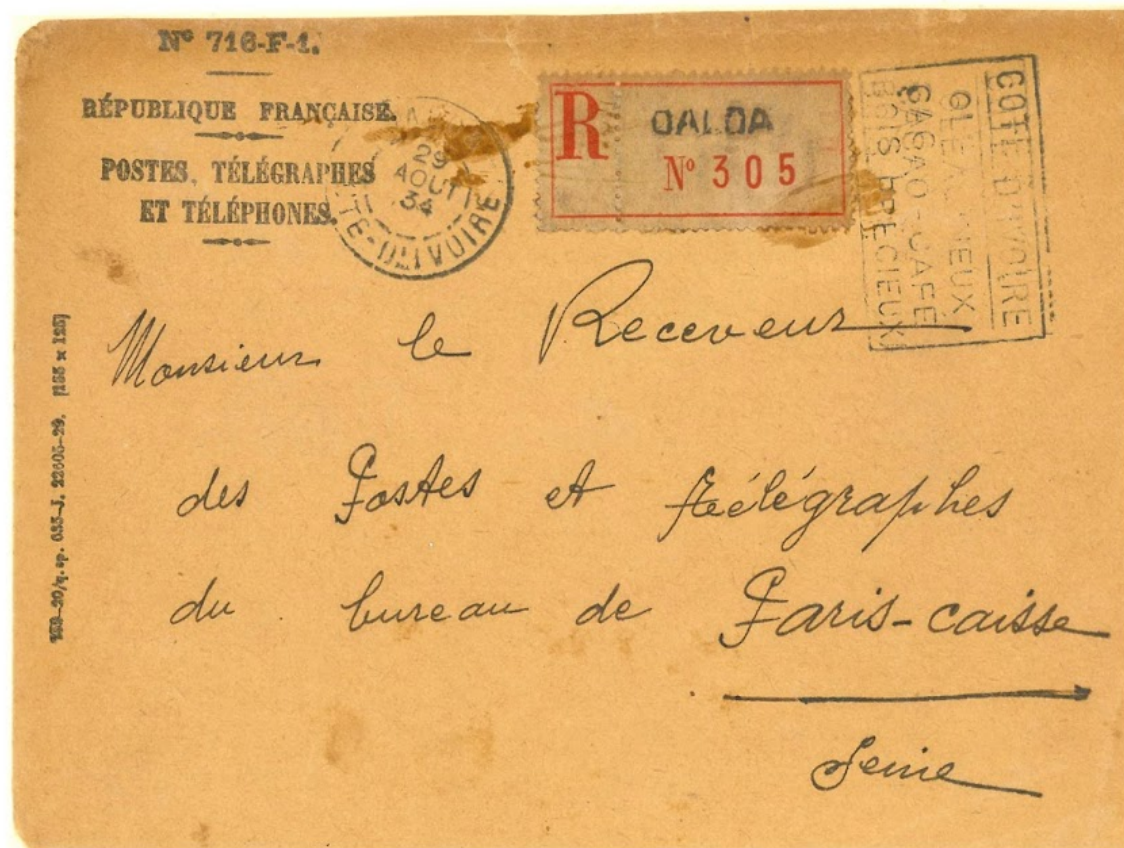 N° 716-F-1.
RÉPUBLIQUE FRANÇAISE.
POSTES, TÉLÉGRAPHES
ET TÉLÉPHONES.
29
AOUT
34
TE-D'IVOIRE
R DALOA
N° 305
COTE D'IVOIRE
OLEAGINEUX
CACAO-CAFÉ
BOIS PRECIEUX
Monsieur le Receveur
des Postes et Télégraphes
du bureau de Paris-caisse
Seine